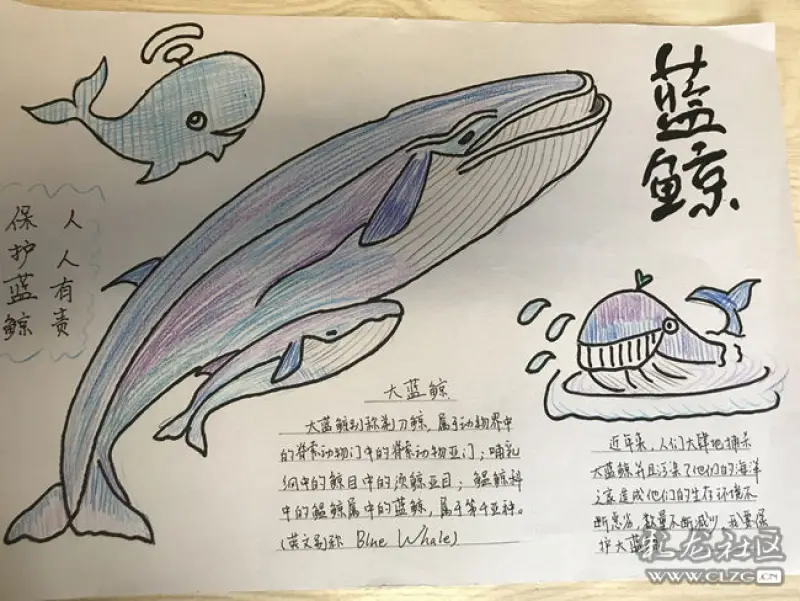 蓝鲸
保护蓝鲸
人人有责
大蓝鲸
大蓝鲸别称剃刀鲸,属于动物界中
的脊索动物门中的脊索动物亚门;哺乳
纲中的鲸目中的须鲸亚目;鳁鲸科
中的鳁鲸属中的蓝鲸,属于第千亚种。
(英文别称 Blue Whale)
近年来,人们大肆地捕杀
大蓝鲸并且污染了他们的海洋
这家造成他们的生存环境不
断恶劣,数量不断减少,我要保
护大蓝
化龙社区
WWW.CLZG.CN